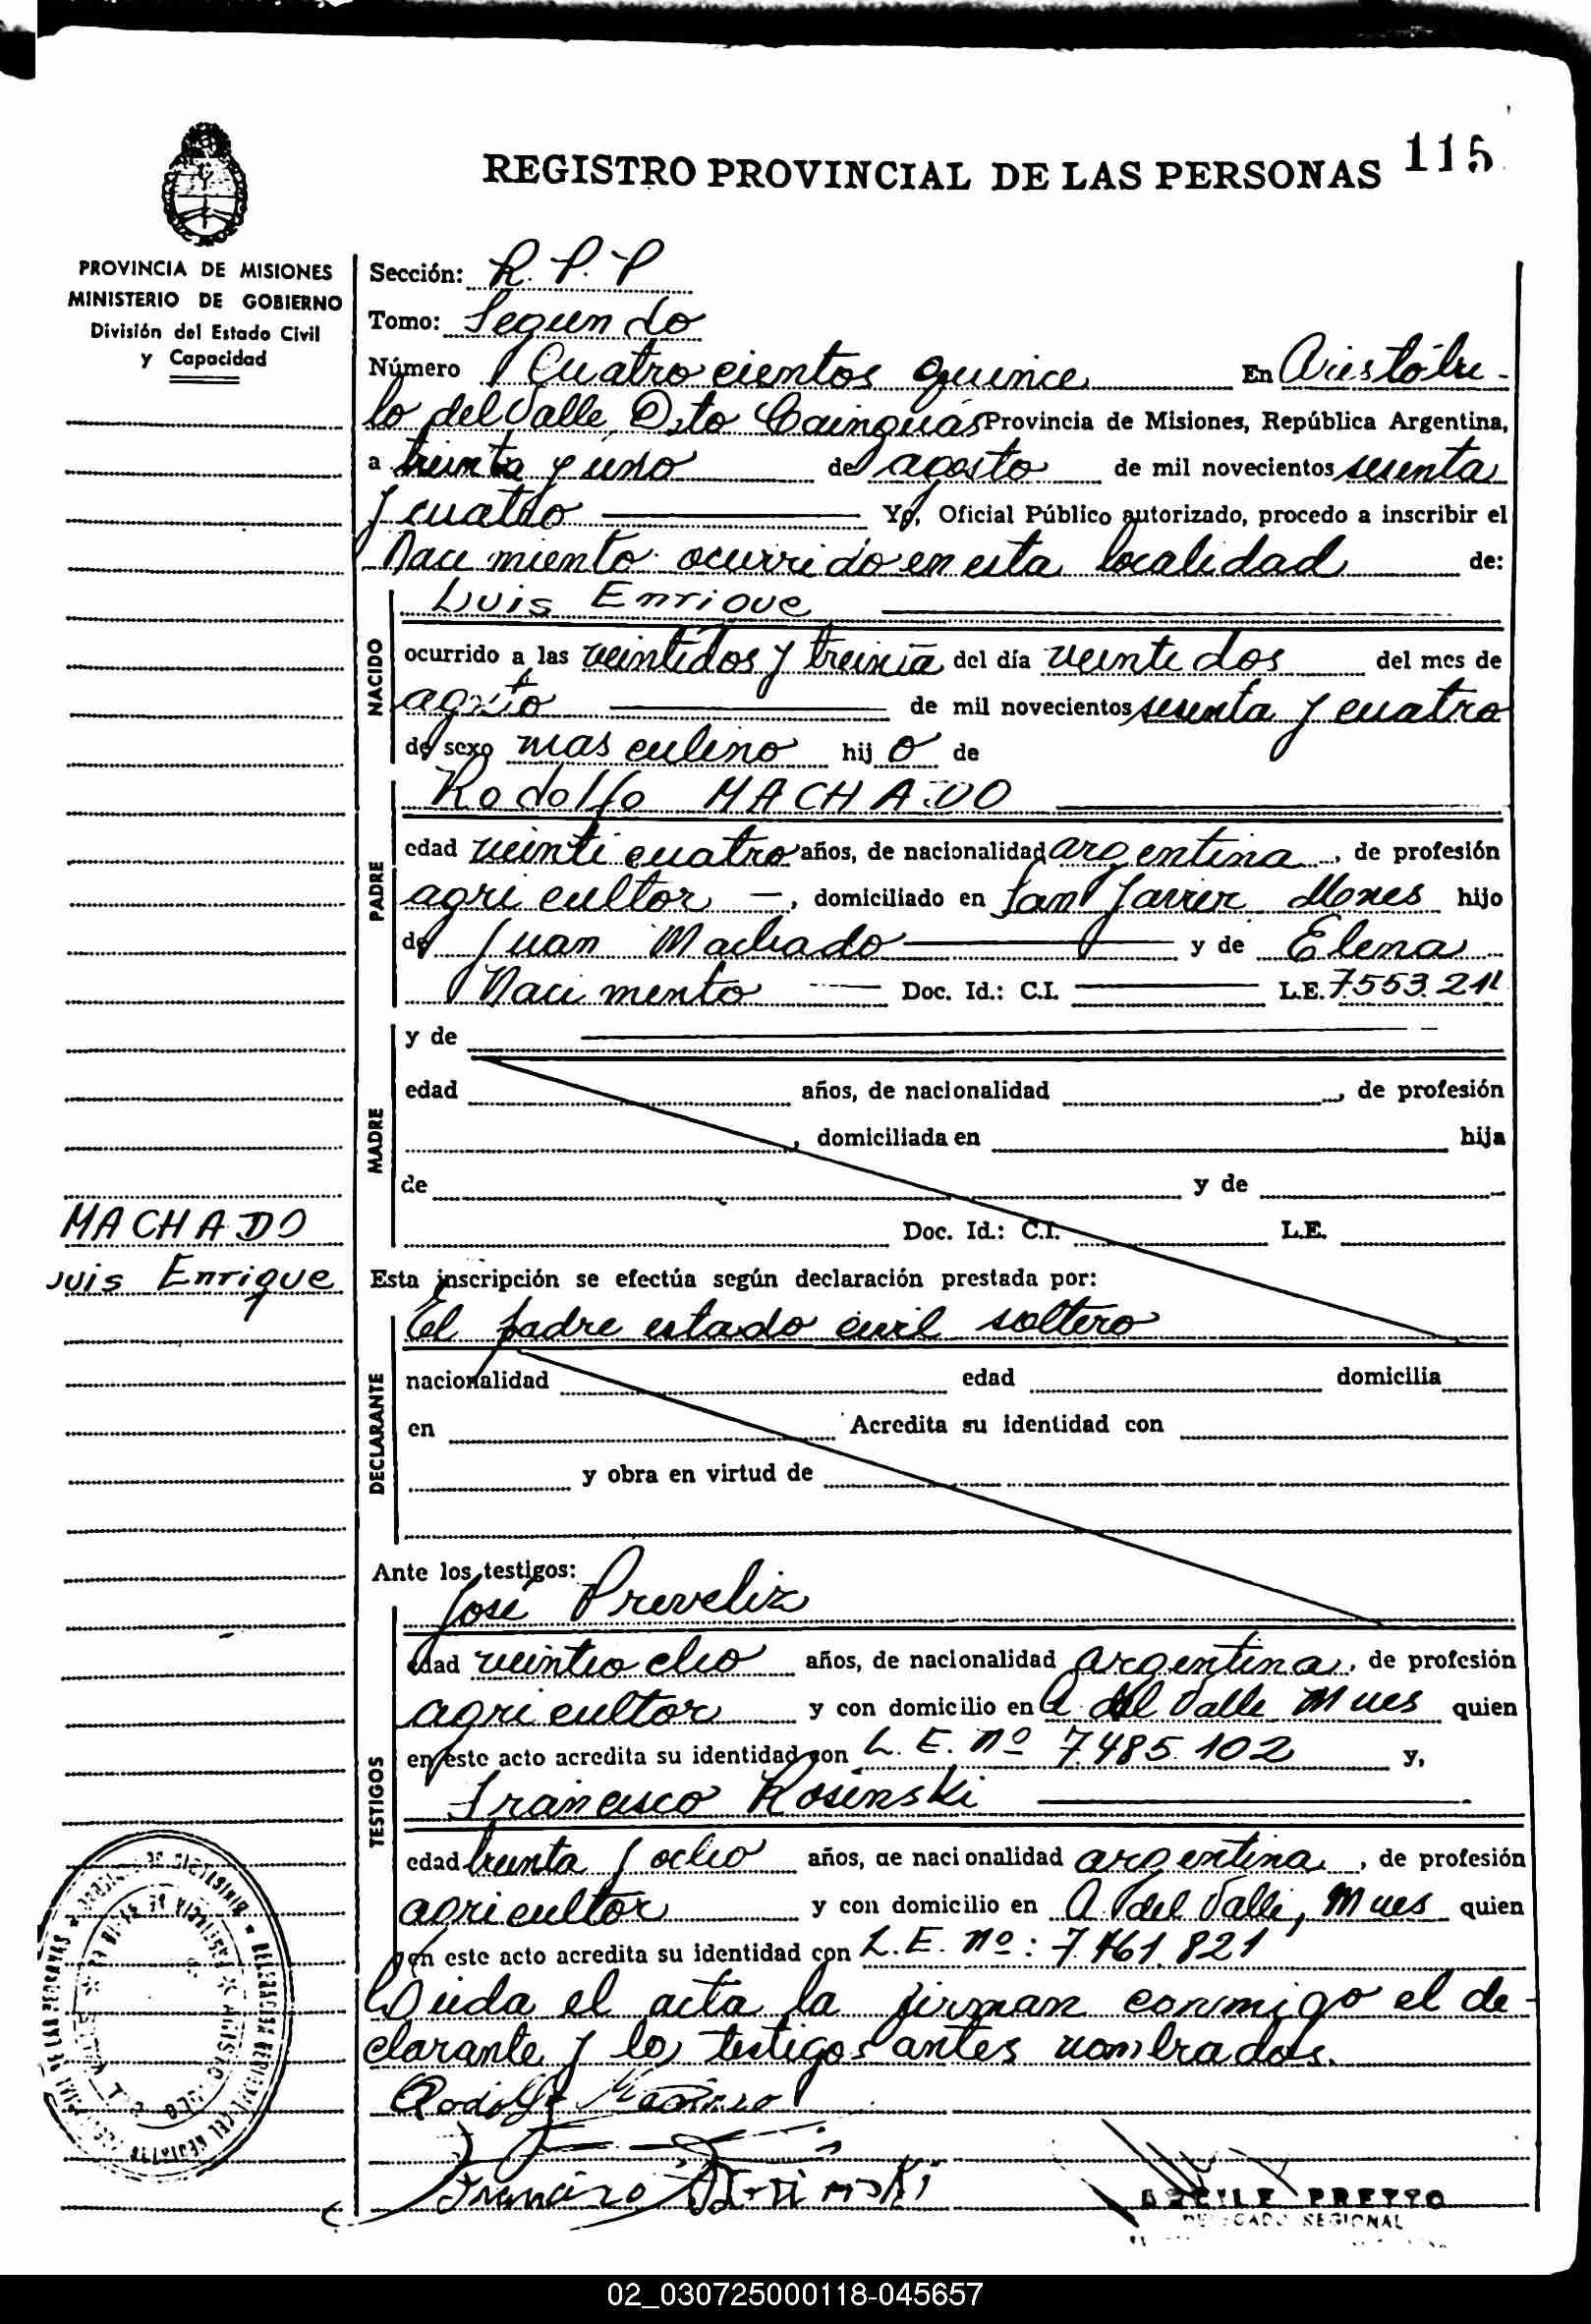 REGISTRO PROVINCIAL DE LAS PERSONAS 115
PROVINCIA DE MISIONES
MINISTERIO DE GOBIERNO
División del Estado Civil
y Capacidad
Sección: R. P. P
Tomo: Segundo
Número Cuatrocientos quince En Aristóbu-
lo del Valle, Dto Cainguás Provincia de Misiones, República Argentina,
a treinta y uno de agosto de mil novecientos sesenta
y cuatro Yo, Oficial Público autorizado, procedo a inscribir el
Nacimiento ocurrido en esta localidad de:
NACIDO
Luis Enrique
ocurrido a las veintidos y treinta del día veintedos del mes de
agosto de mil novecientos sesenta y cuatro
de sexo masculino hij o de
PADRE
Rodolfo MACHADO
edad veinticuatro años, de nacionalidad argentina, de profesión
agricultor —, domiciliado en San Javier Mnes hijo
de Juan Machado y de Elena
Nacimento Doc. Id.: C.I. L.E. 7.553.211
MADRE
y de
edad años, de nacionalidad , de profesión
, domiciliada en hija
de y de
Doc. Id.: C.I. L.E.
MACHADO
Luis Enrique
Esta inscripción se efectúa según declaración prestada por:
DECLARANTE
El padre estado civil soltero
nacionalidad edad domicilia
en Acredita su identidad con
y obra en virtud de
Ante los testigos:
TESTIGOS
José Preveliz
edad veintiocho años, de nacionalidad argentina, de profesión
agricultor y con domicilio en A. del Valle Mnes quien
en este acto acredita su identidad con L. E. nº 7.485.102 y,
Francisco Rosinski
edad treinta y ocho años, de nacionalidad argentina, de profesión
agricultor y con domicilio en A. del Valle, Mnes quien
en este acto acredita su identidad con L. E. nº: 7.461.821
Leida el acta la firman conmigo el de-
clarante y los testigos antes nombrados.
Rodolfo
Francisco
PRETTO
DELEGADO REGIONAL
02_030725000118-045657